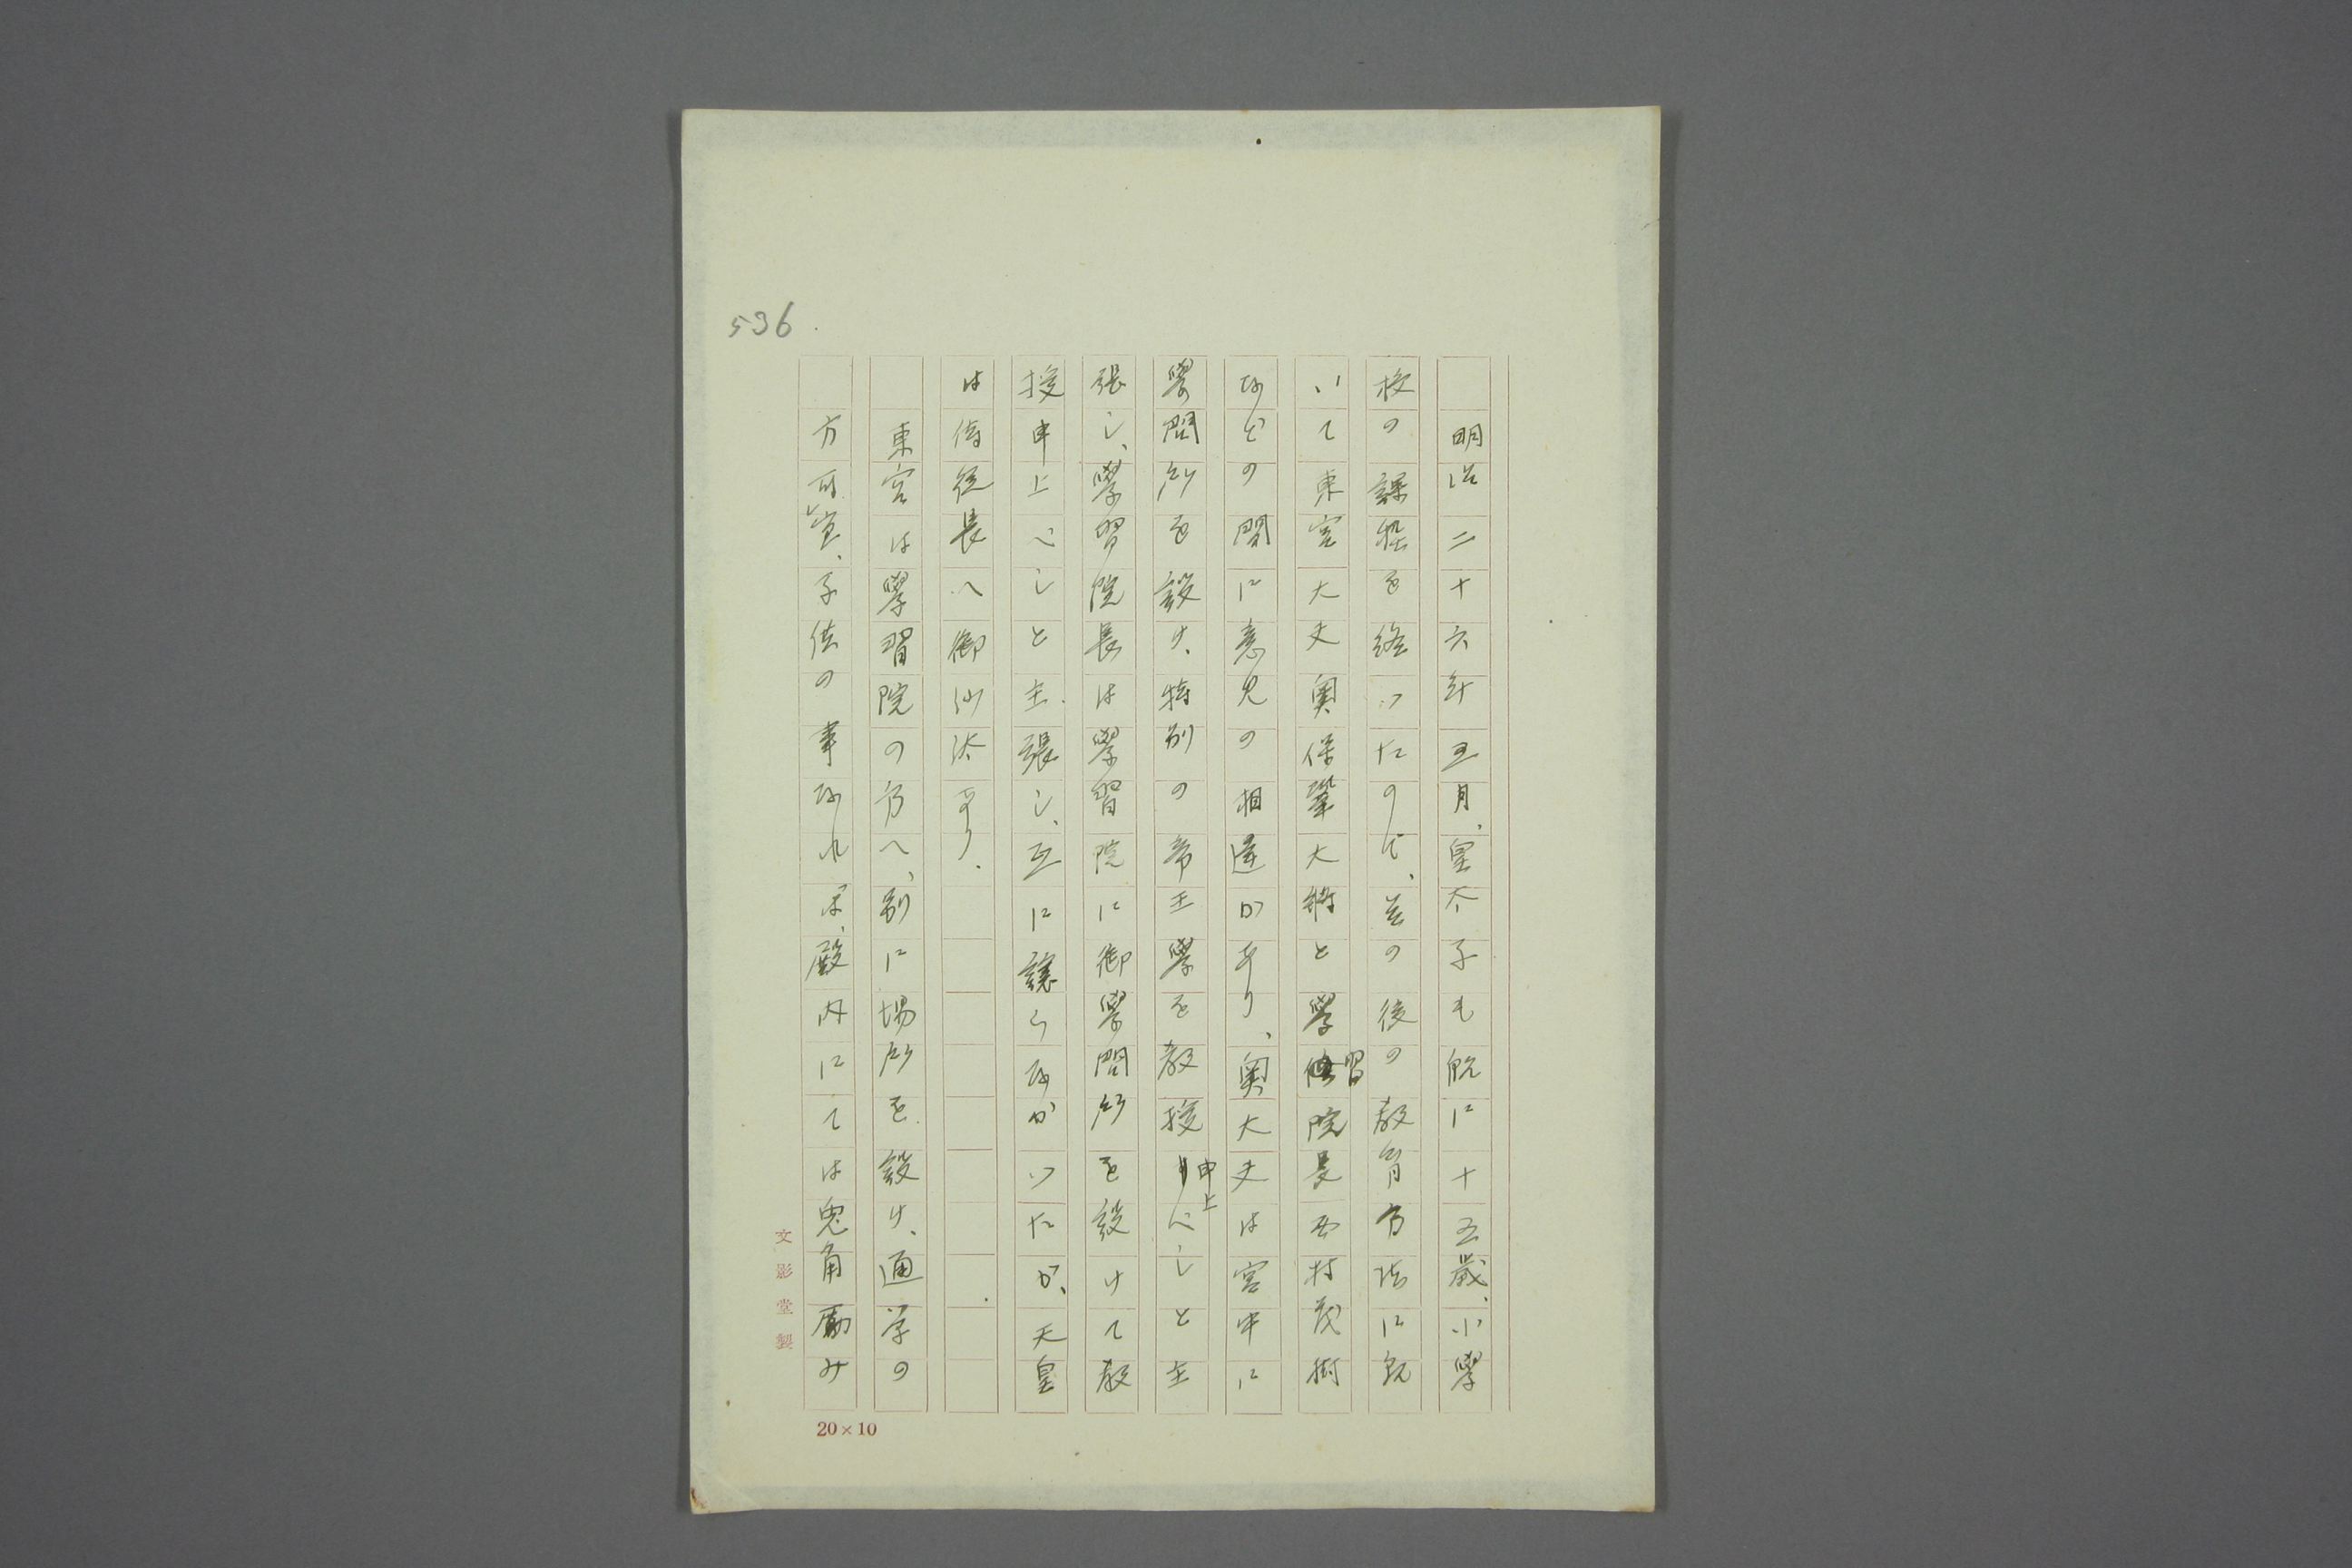 536
明治二十六年五月、皇太子も既に十五歳、小學
校の課程を終つたので、其の後の教育方法に就
いて東宮大夫奥保鞏大將と學習院長西村茂樹
などの間に意見の相違があり、奥大夫は宮中に
學問所を設け、特別の帝王學を教授申上べしと主
張し、學習院長は學習院に御學問所を設けて教
授申上べしと主張し、互に譲らなかつたが、天皇
は侍從長へ御沙汰あり、
東宮は學習院の方へ、別に場所を設け、通学の
方可宜、子供の事なれば、殿内にては兎角励み
文影堂製
20×10